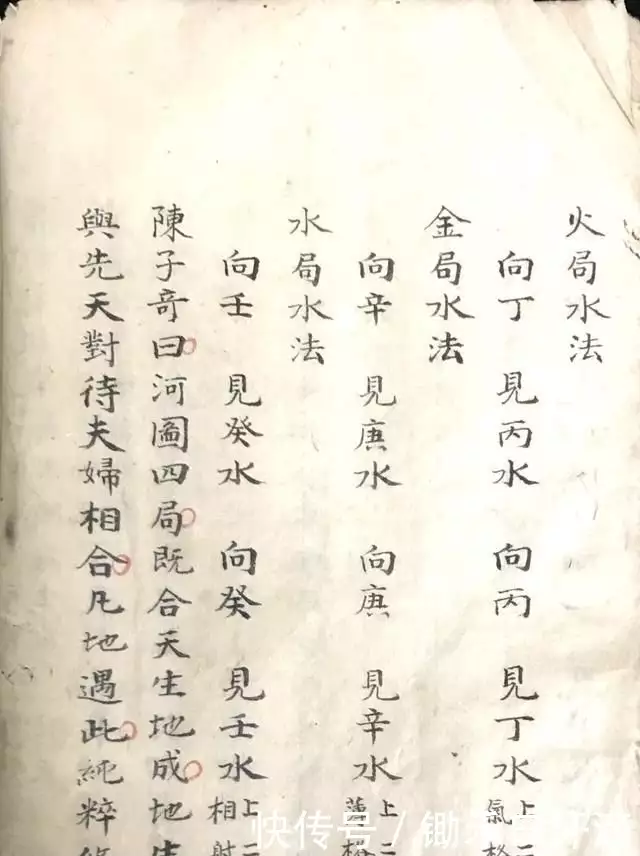 火局水法
向丁 見丙水 向丙 見丁水 上二
氣格
金局水法
向辛 見庚水 向庚 見辛水 上二
薄
水局水法
向壬 見癸水 向癸 見壬水 上二
相射
陳子奇曰河圖四局既合天生地成地生
與先天對待夫婦相合凡地遇此純粹
快传号